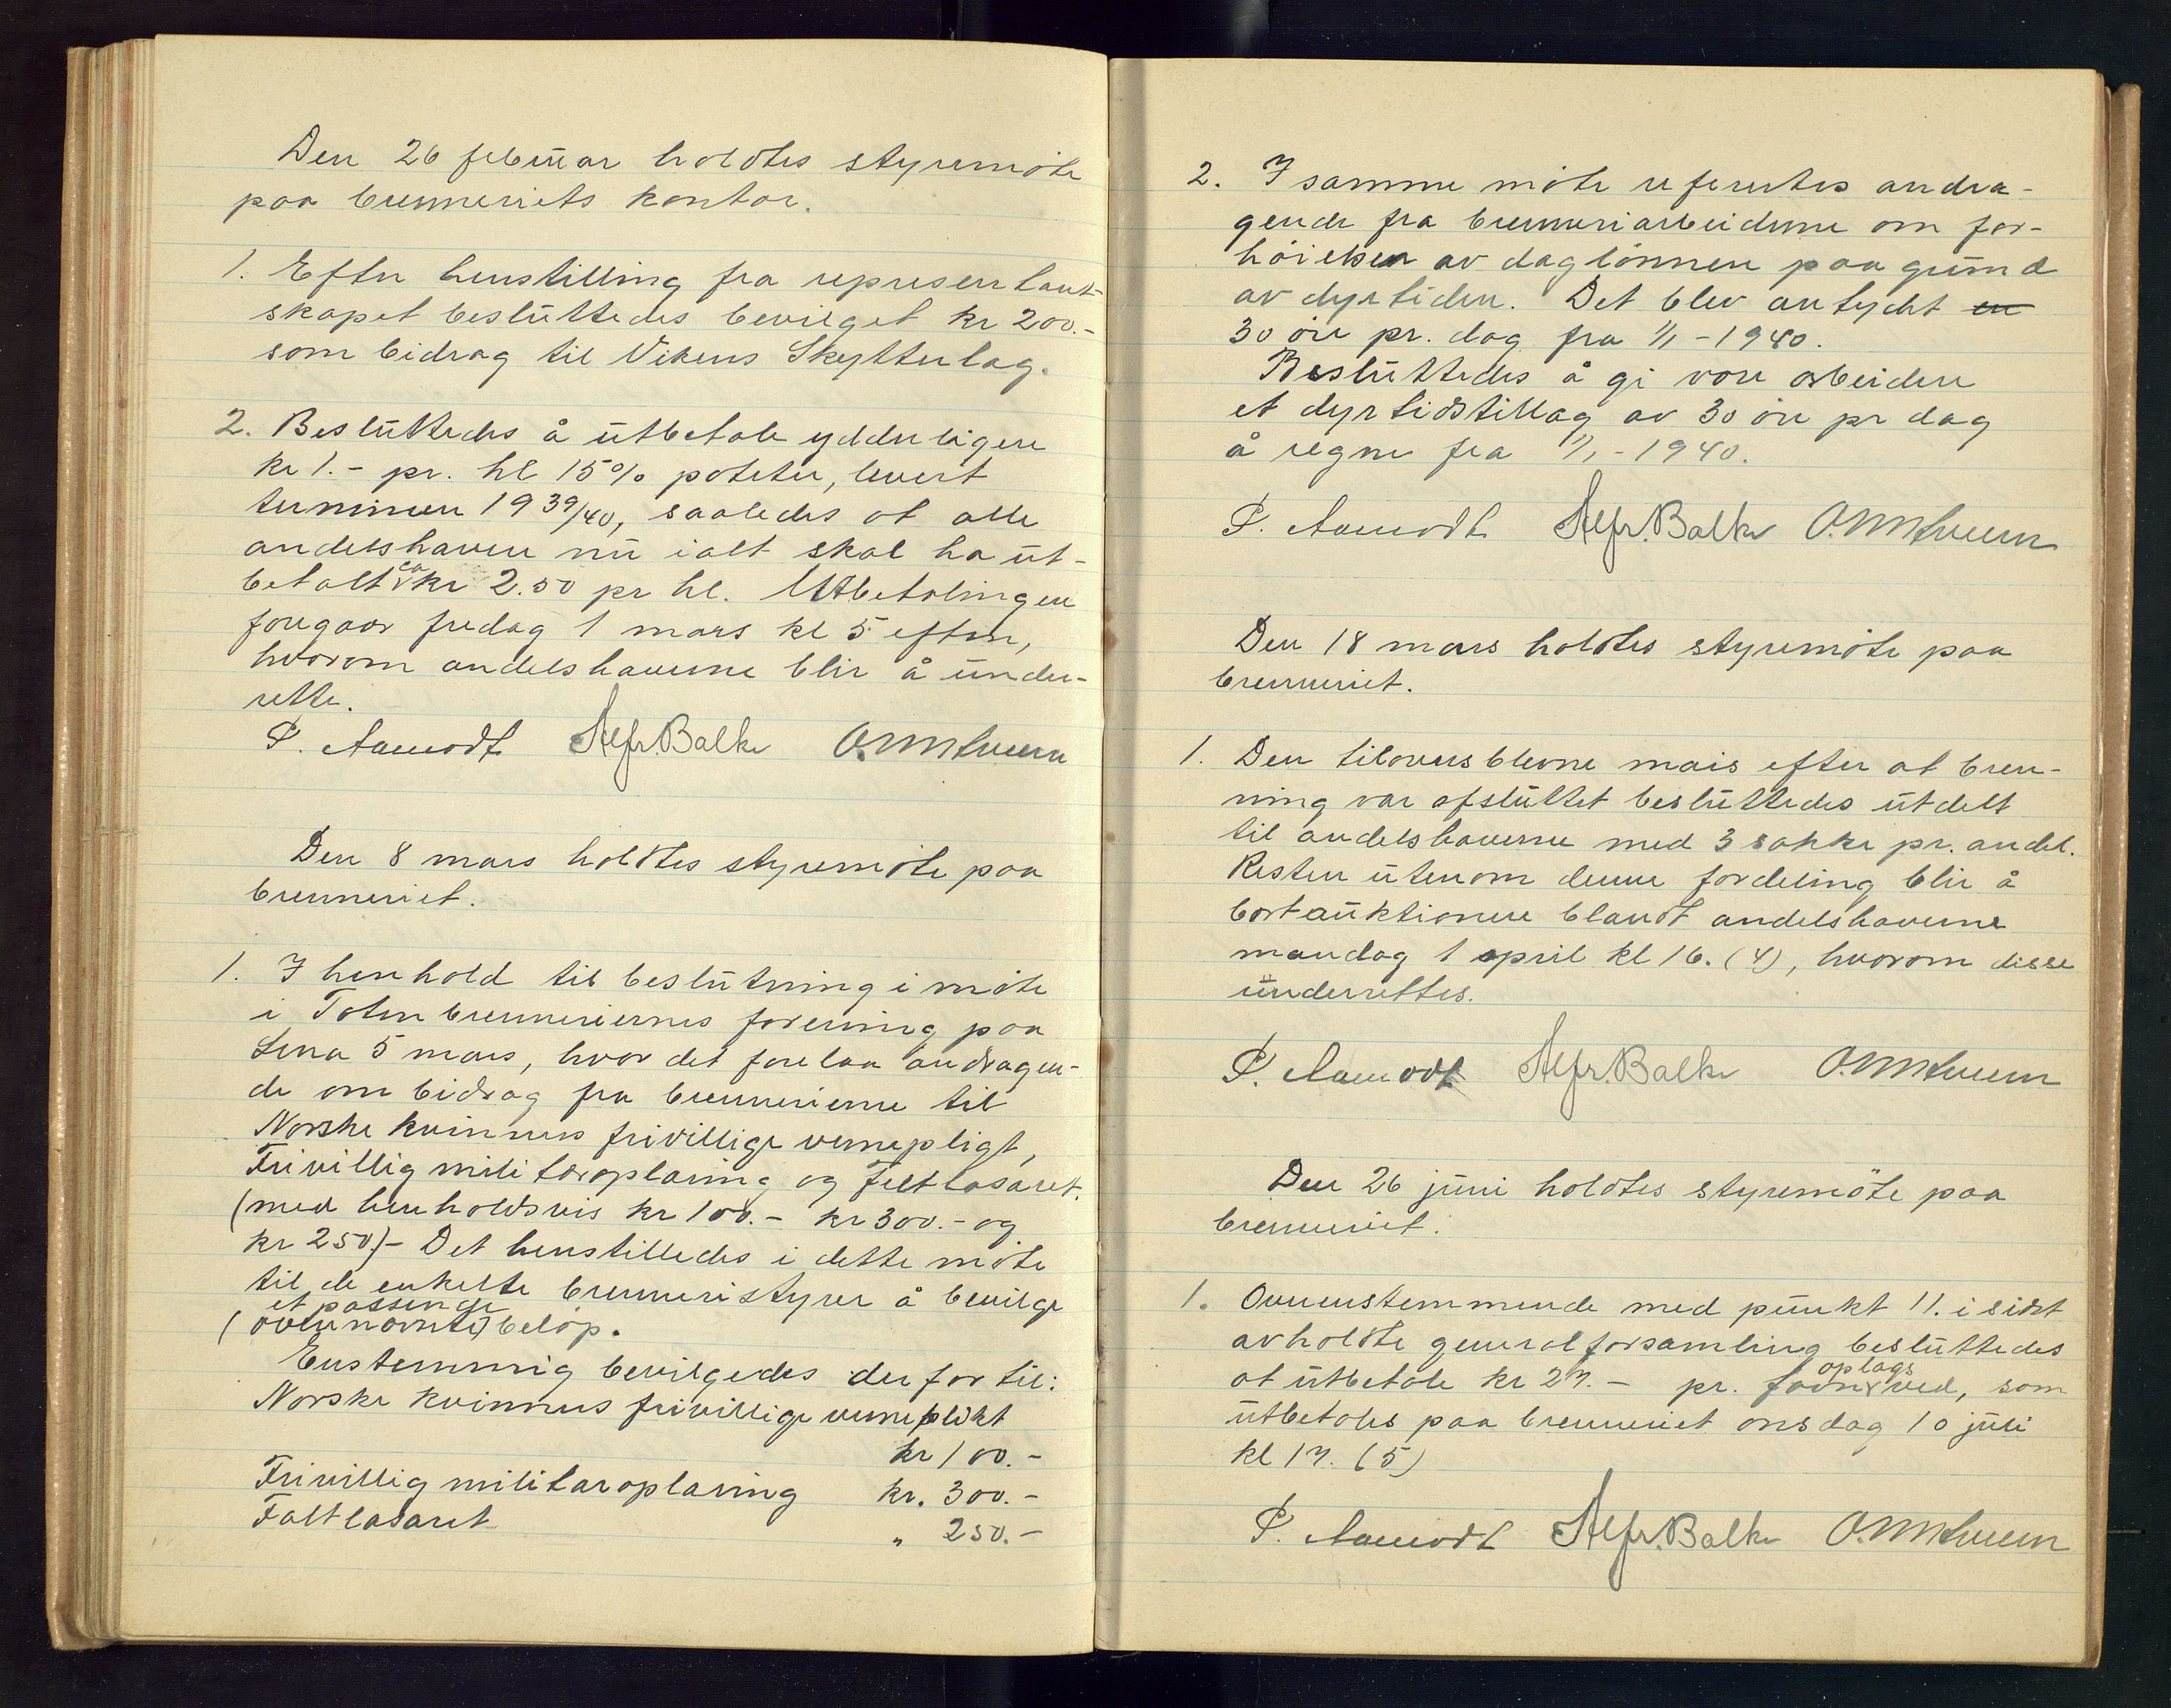 Den 26 februar holdtes styremöte
paa brenneriets kontor.
1. Efter henstilling fra representant-
skapet besluttedes bevilget kr 200.-
som bidrag til Vikens Skytterlag.
2. Besluttedes å utbetale ydderligere
kr 1.- pr. hl 15% poteter, levert
terminen 1939/40, saaledes at alle
andelshavere nu ialt skal ha ut-
betalt ca kr 2.50 pr hl. Utbetalingen
foregaar fredag 1 mars kl 5 eftm,
hvorom andelshaverne blir å under-
rette.
P. Aamodt Alfr. Balke
Den 8 mars holdtes styremöte paa
brenneriet.
1. I henhold til beslutning i möte
i Toten brenneriernes forening paa
Lena 5 mars, hvor det forelaa andragen-
de om bidrag fra brennerierne til
Norske kvinners frivillige vernepligt,
Frivillig militæroplæring og Feltlasaret.
(med henholdsvis kr 100.- kr 300.- og
kr 250)- Det henstilledes i dette möte
til de enkelte brenneristyrer å bevilge
et passende
(ovennævnte) belöp.
Enstemmig bevilgedes derfor til:
Norske kvinners frivillige verneplikt
kr 100.-
Frivillig militæroplæring kr. 300.-
Faltlasaret " 250.-
2. I samme möte referertes andra-
gende fra brenneriarbeiderne om for-
höielsen av daglönnen paa grund
av dyrtiden. Det blev antydet en
30 öre pr. dag fra 1/1 - 1940.
Besluttedes å gi vore arbeidere
et dyrtidstillag av 30 öre pr dag
å regne fra 1/1 - 1940.
P. Aamodt Alfr. Balke
Den 18 mars holdtes styremöte paa
brenneriet.
1. Den tiloversblevne mais efter at bren-
ning var afsluttet besluttedes utdelt
til andelshaverne med 3 sakke pr. andel.
Resten utenom denne fordeling blir å
bortauktionere blandt andelshaverne
mandag 1 april kl 16. (4), hvorom disse
underrettes.
P. Aamodt Alfr. Balke
Den 26 juni holdtes styremöte paa
brenneriet.
1. Overenstemmende med punkt 11. i sidst
avholdte generalforsamling besluttedes
at utbetale kr 27.- pr. favn oplags ved, som
utbetales paa brenneriet onsdag 10 juli
kl 17. (5)
P. Aamodt Alfr. Balke